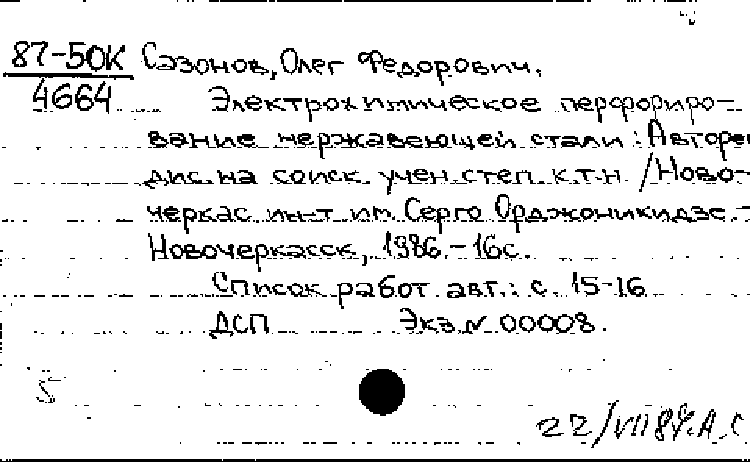 87-50К Сазонов, Олег Федорович.
4664 Электрохимическое перфориро-
вание нержавеющей стали: Авторе
дис. на соиск. учен. степ. к.т.н. / Ново-
черкас. ин-т им. Серго Орджоникидзе. -
Новочеркасск, 1986. - 16с.
Список работ авт.: с. 15-16
ДСП Экз. № 00008.
5
22/VII 87. А.С